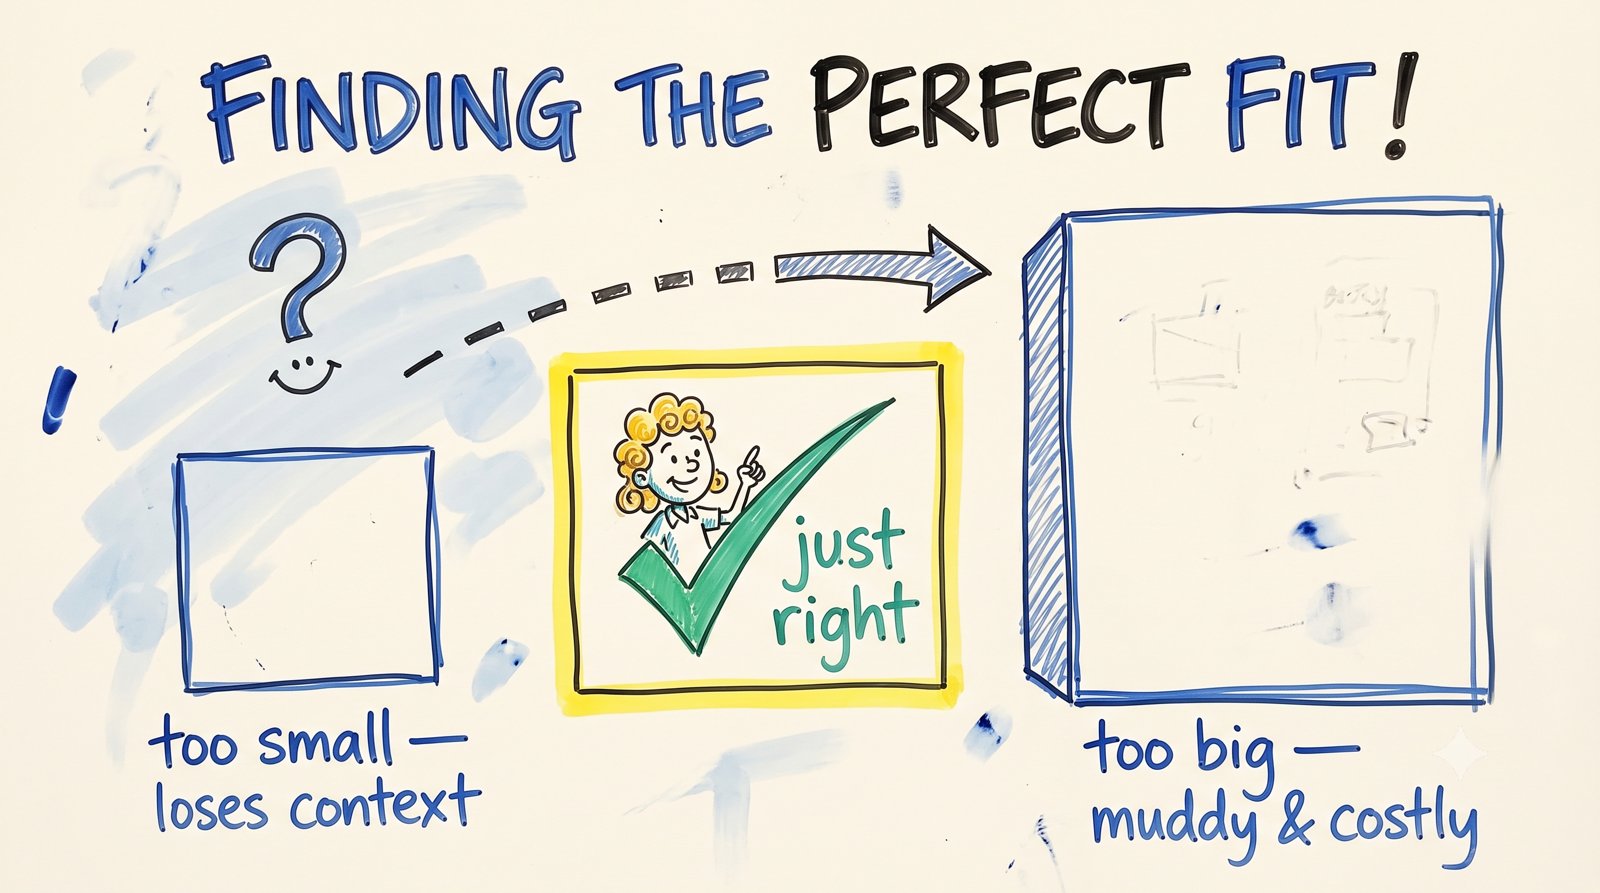 FINDING THE PERFECT FIT!
?
just
right
too small —
loses context
too big —
muddy & costly